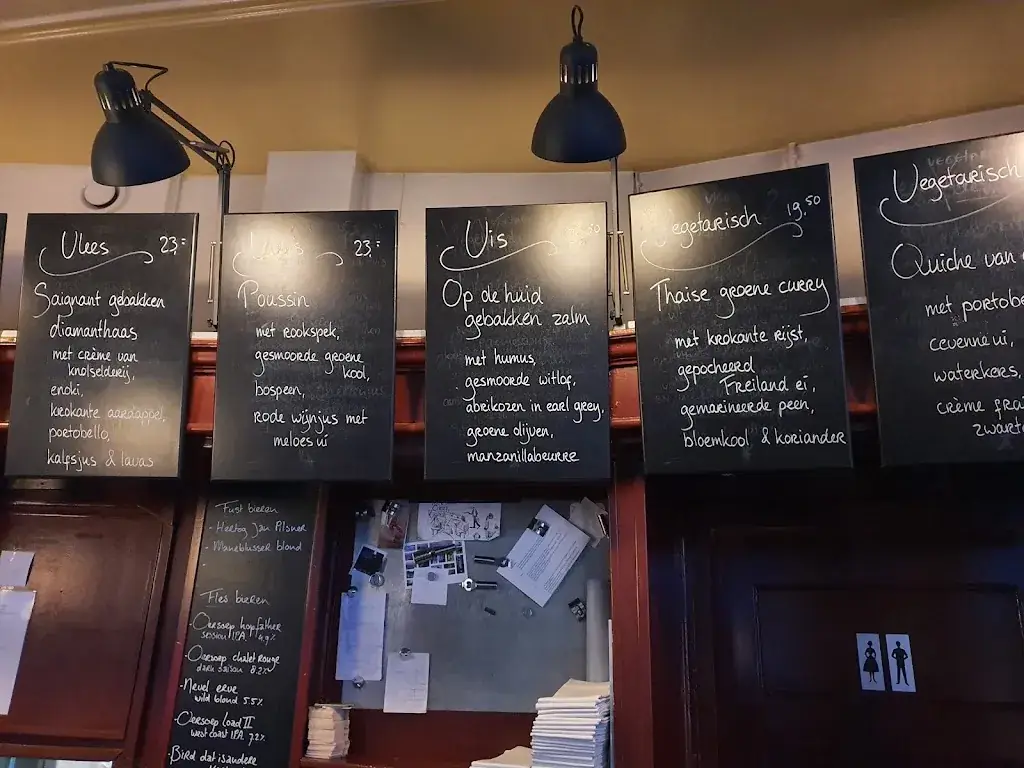 Vlees 23,-
Saignant gebakken
diamanthaas
met crème van
knolselderij,
enoki,
krokante aardappel,
portobello,
kalfsjus & lavas
Vlees 23,-
Poussin
met rookspek,
gesmoorde groene
kool,
bospeen,
rode wijnjus met
meloes ui
Vis
Op de huid
gebakken zalm
met humus,
gesmoorde witlof,
abrikozen in earl grey,
groene olijven,
manzanillabeurre
Vegetarisch 19,50
Thaise groene curry
met krokante rijst,
gepocheerd
Freiland ei,
gemarineerde peen,
bloemkool & koriander
Vegetarisch
Quiche van
met portobe
cevenne ui,
waterkers,
crème frai
zwarte
Fust bieren
- Hertog Jan Pilsner
- Maneblusser blond
Fles bieren
- Oersoep hopfather
session IPA 4.9%
- Oersoep chalet Rouge
dark saison 8.2%
- Nevel erve
wild blond 5.5%
- Oersoep Load II
west coast IPA 7.2%
- Bird dat is andere